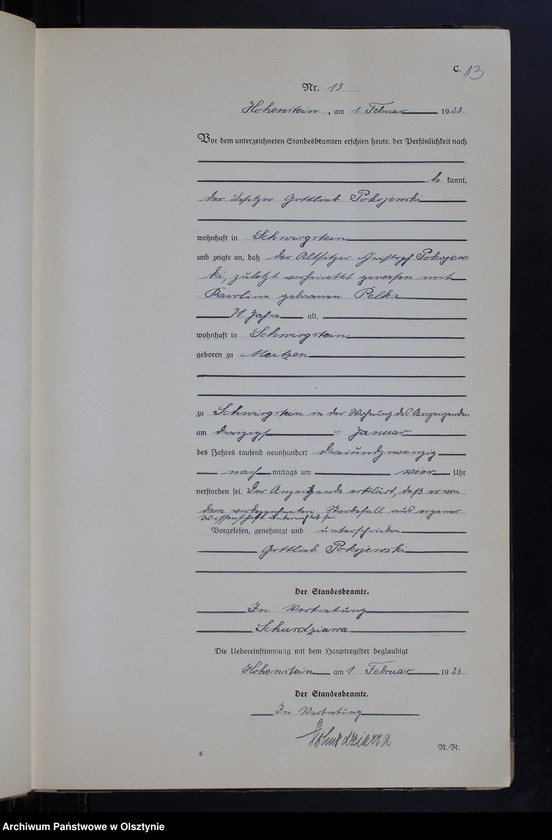 C. 13
Nr. 13
Hohenstein, am 1. Februar 1923
Vor dem unterzeichneten Standesbeamten erschien heute, der Persönlichkeit nach
be kannt,
der Besitzer Gottlieb Pokojewski
wohnhaft in Schwirgstein
und zeigte an, daß der Altsitzer Christoph Pokojews-
ki, zuletzt verheiratet gewesen mit
Karoline geborenen Pelka
71 Jahre alt,
wohnhaft in Schwirgstein
geboren zu
zu Schwirgstein in der Wohnung des Anzeigenden
am dreizigs Januar
des Jahres tausend neunhundert dreiundzwanzig
nach mittags um vier Uhr
verstorben sei. Der Anzeigende erklärt, daß er von
dem vorbezeichneten Sterbefall aus eigener
Wissenschaft unterrichtet sei
Vorgelesen, genehmigt und unterschrieben
Gottlieb Pokojewski
Der Standesbeamte.
In Vertretung
Schurdziarra
Die Uebereinstimmung mit dem Hauptregister beglaubigt
Hohenstein am 1. Februar 1923
Der Standesbeamte.
In Vertretung
Schurdziarra
6
N.-R.
Archiwum Państwowe w Olsztynie